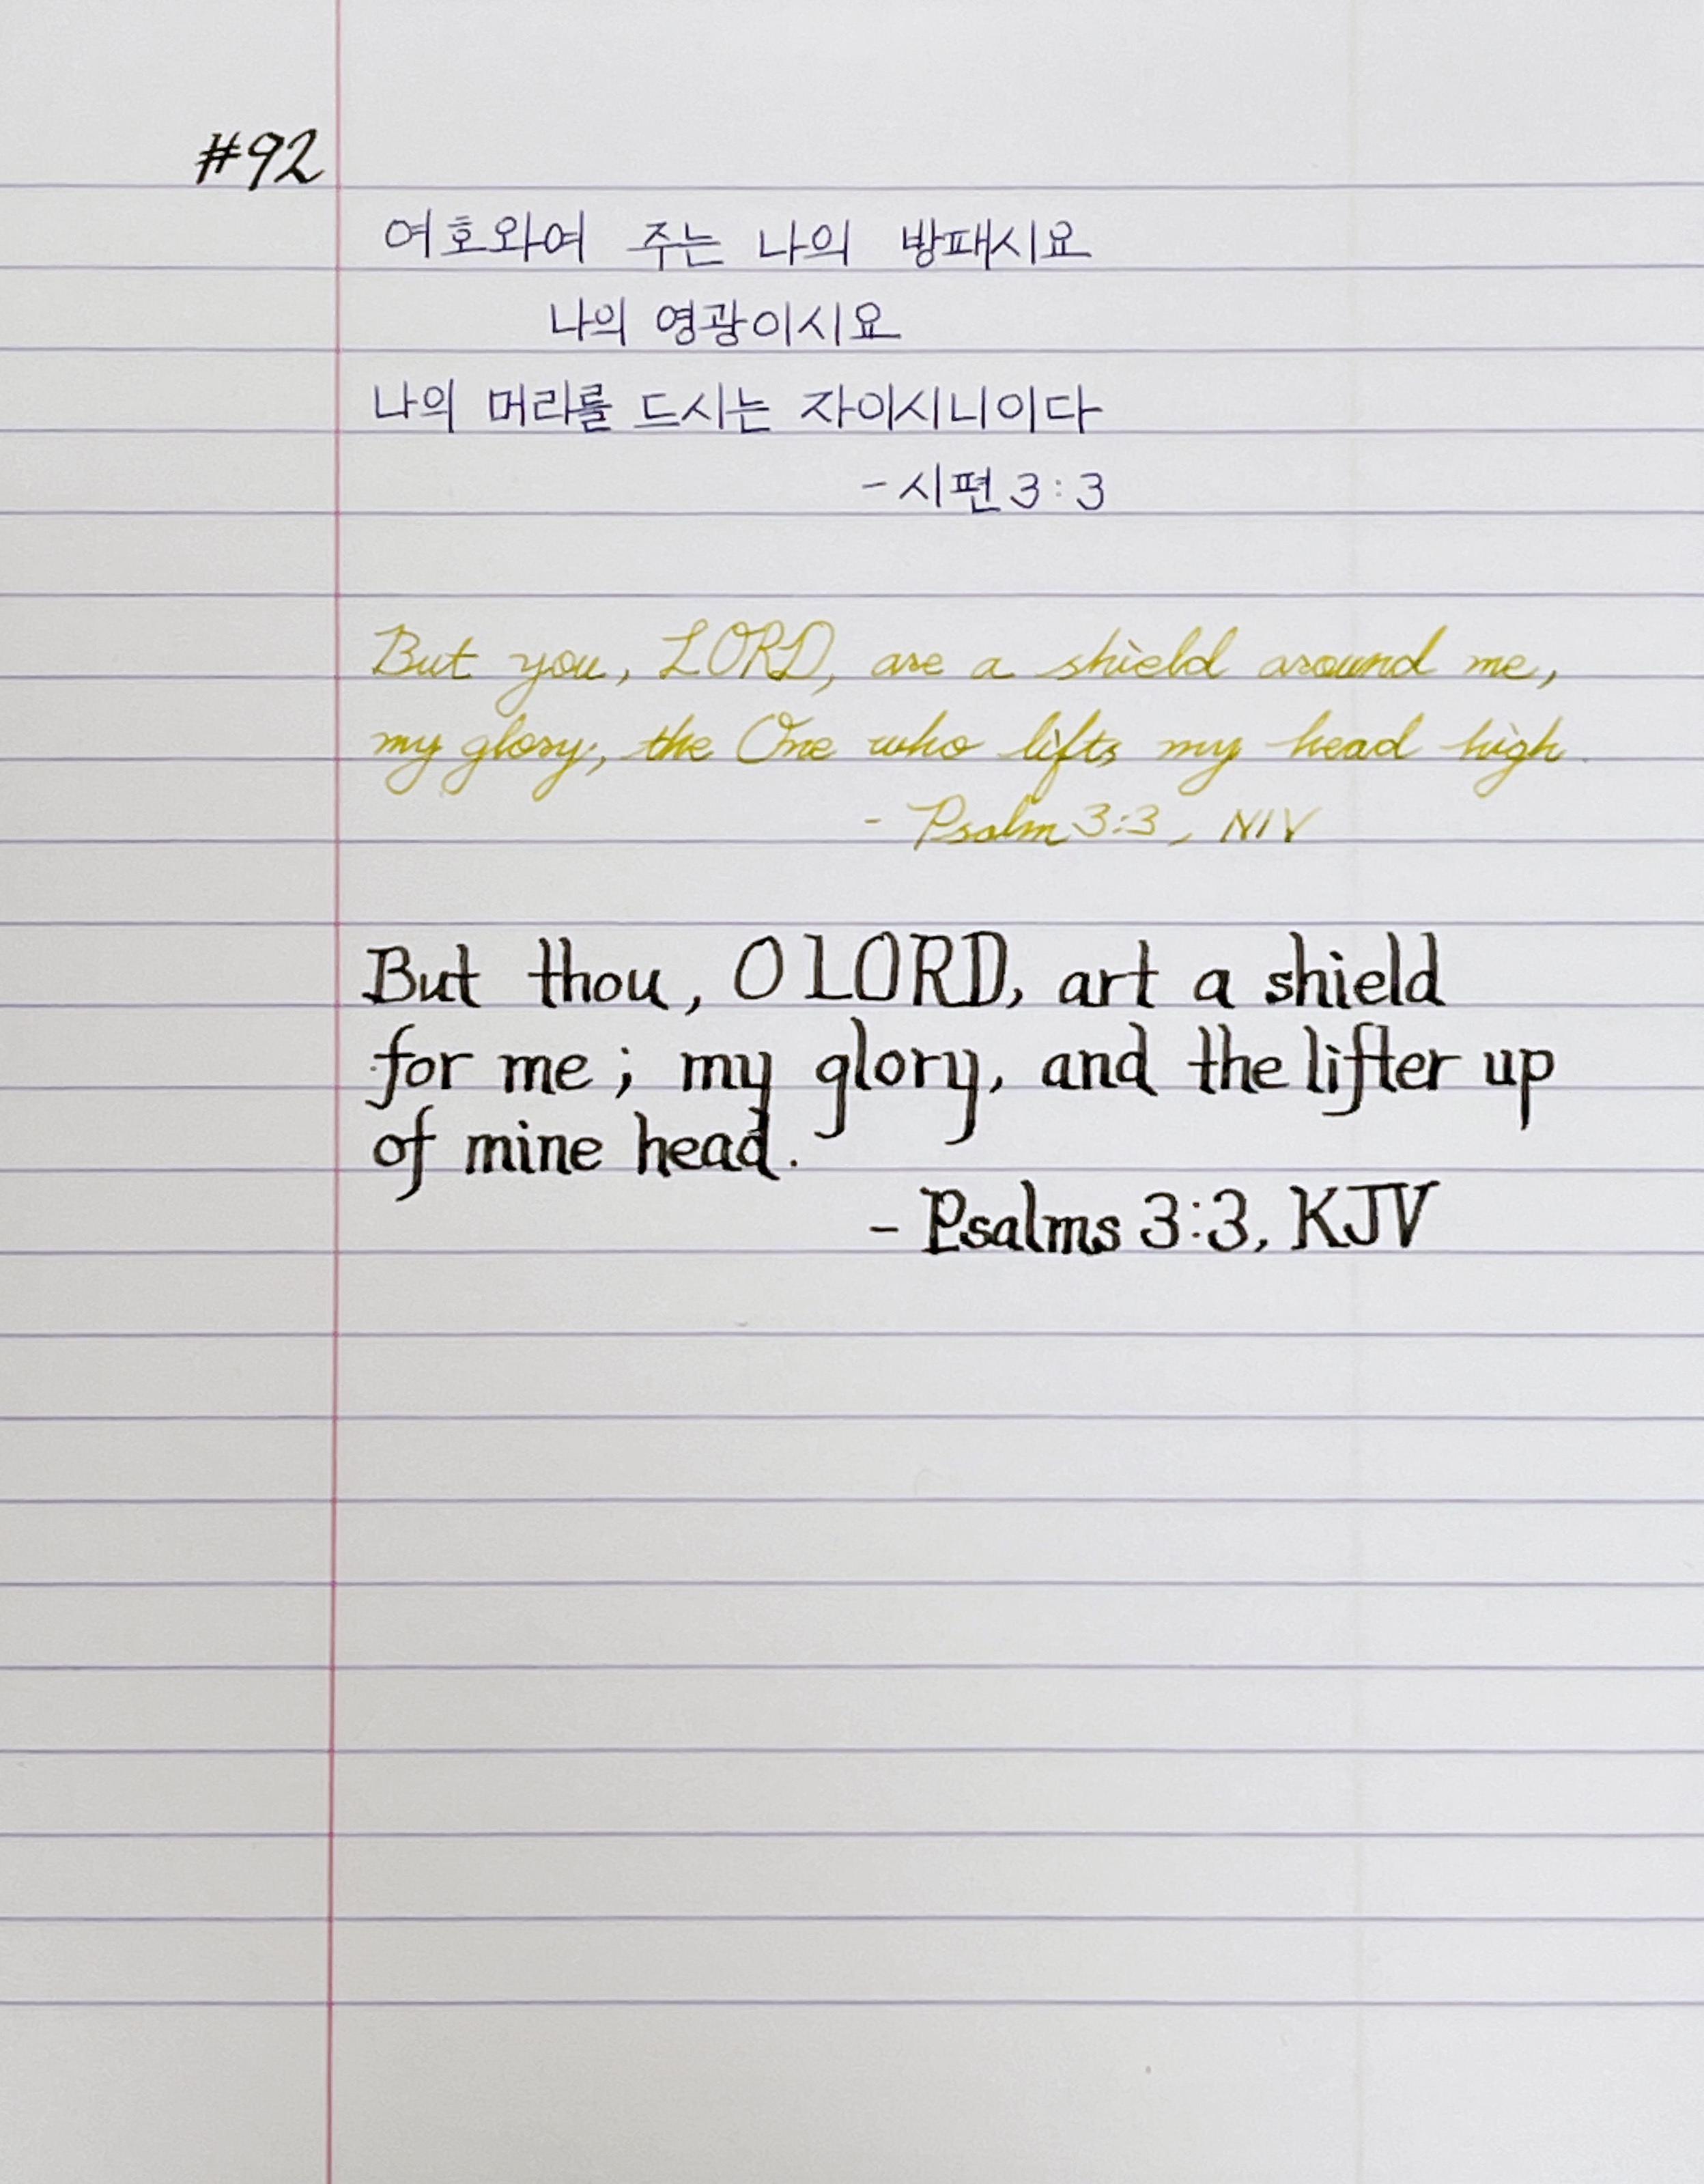 #92
여호와여 주는 나의 방패시요
나의 영광이시요
나의 머리를 드시는 자이시니이다
- 시편 3:3
But you, LORD, are a shield around me,
my glory, the One who lifts my head high.
- Psalm 3:3, NIV
But thou, O LORD, art a shield
for me; my glory, and the lifter up
of mine head.
- Psalms 3:3, KJV